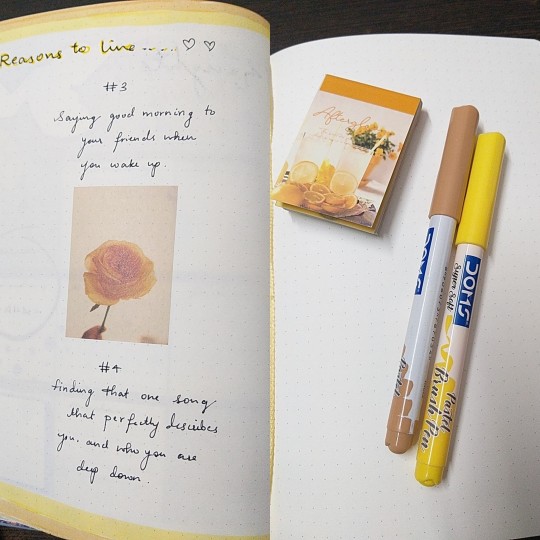 Reasons to live ..... ♡ ♡
#3
Saying good morning to
your friends when
you wake up.
#4
finding that one song
that perfectly describes
you. and who you are
deep down.
Afterglow
DOMS
DOMS
Super Soft
Pastel
Brush Pen